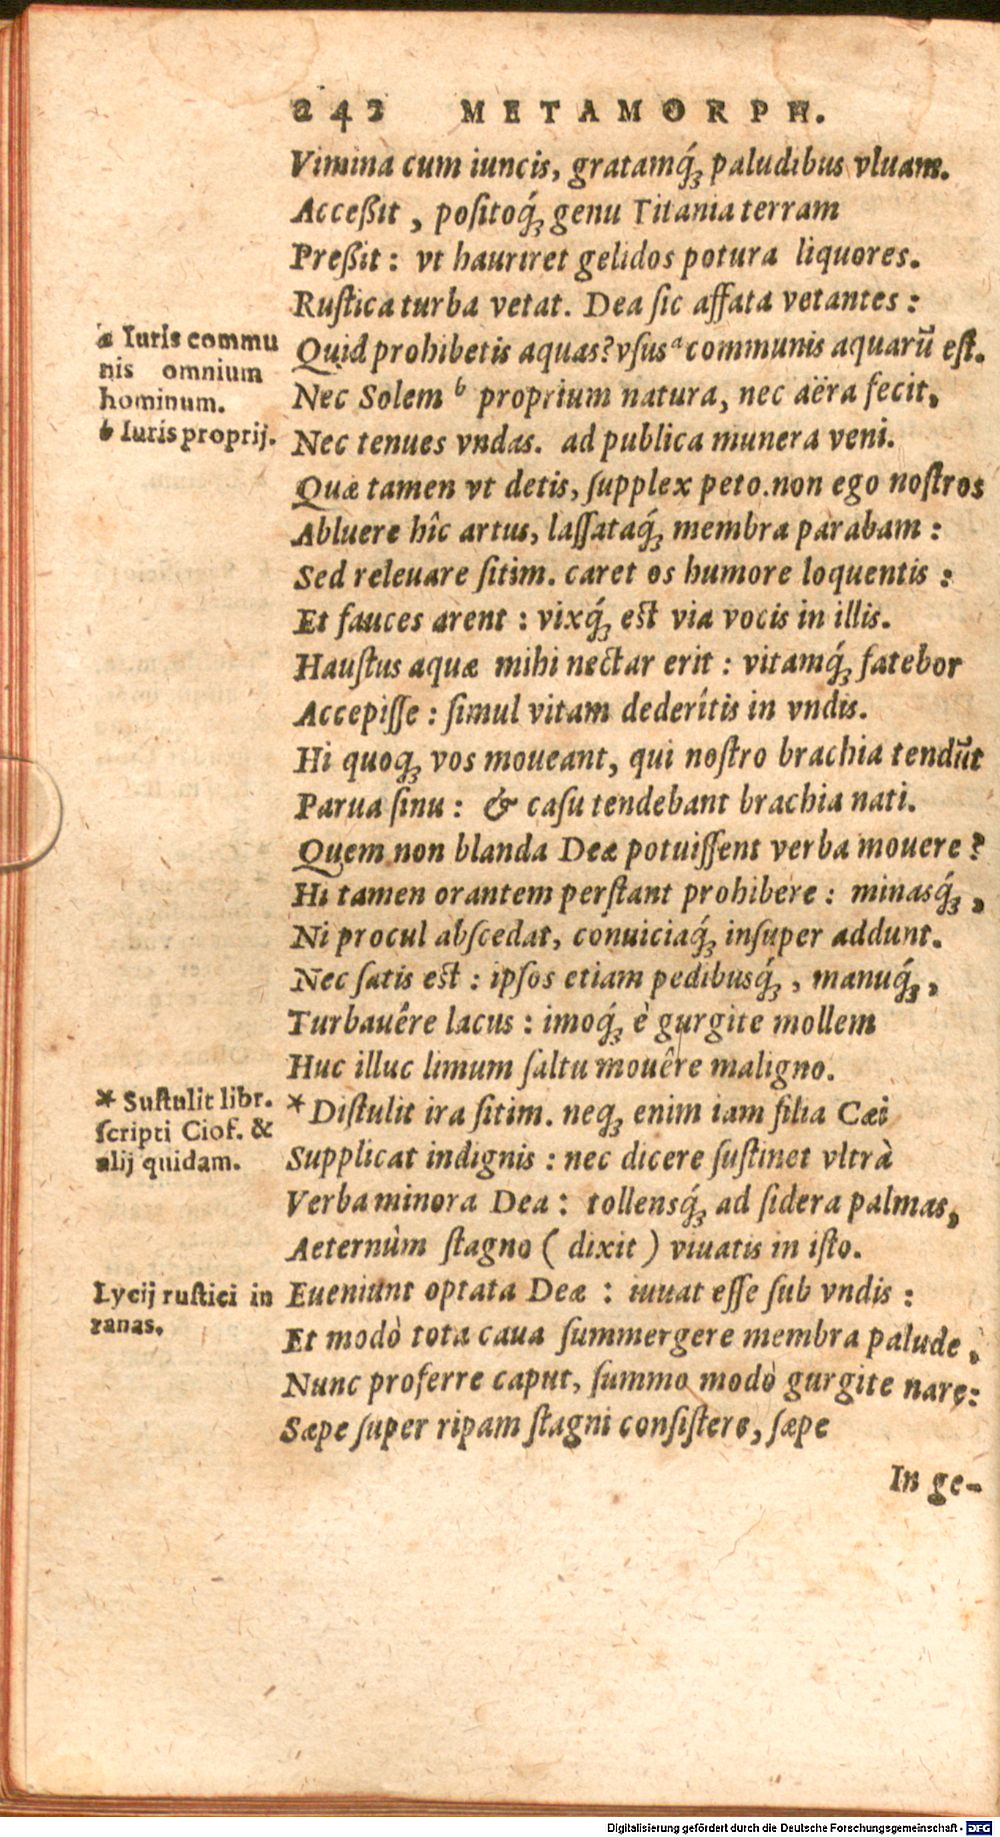 242 METAMORPH.
Vimina cum iuncis, gratamq́ꝫ paludibus vluam.
Acceßit, poſitoq́ꝫ genu Titania terram
Preßit: vt hauriret gelidos potura liquores.
Ruſtica turba vetat. Dea ſic affata vetantes:
a Iuris commu
nis omnium
hominum.
b Iuris proprij.
Quid prohibetis aquas? vſus a communis aquarũ eſt.
Nec Solem b proprium natura, nec aëra fecit,
Nec tenues vndas. ad publica munera veni.
Quæ tamen vt detis, ſupplex peto. non ego noſtros
Abluere hîc artus, laſſataq́ꝫ membra parabam:
Sed releuare ſitim. caret os humore loquentis:
Et fauces arent: vixq́ꝫ eſt via vocis in illis.
Hauſtus aquæ mihi nectar erit: vitamq́ꝫ fatebor
Accepiſſe: ſimul vitam dederítis in vndis.
Hi quoqꝫ vos moueant, qui noſtro brachia tendũt
Parua ſinu: & caſu tendebant brachia nati.
Quem non blanda Deæ potuiſſent verba mouere?
Hi tamen orantem perſtant prohibere: minasq́ꝫ,
Ni procul abſcedat, conuiciaq́ꝫ inſuper addunt.
Nec ſatis eſt: ipſos etiam pedibusq́ꝫ, manuq́ꝫ,
Turbauêre lacus: imoq́ꝫ è gurgite mollem
Huc illuc limum ſaltu mouêre maligno.
* Suſtulit libr.
ſcripti Ciof. &
alij quidam.
*Diſtulit ira ſitim. neqꝫ enim iam filia Cæi
Supplicat indignis: nec dicere ſuſtinet vltrà
Verba minora Dea: tollensq́ꝫ ad ſidera palmas,
Aeternùm ſtagno (dixit) viuatis in iſto.
Lycij ruſtici in
ranas.
Eueniunt optata Deæ: iuuat eſſe ſub vndis:
Et modò tota caua ſummergere membra palude,
Nunc proferre caput, ſummo modò gurgite nare:
Sæpe ſuper ripam ſtagni conſiſtere, ſæpe
In ge-
Digitalisierung gefördert durch die Deutsche Forschungsgemeinschaft - DFG